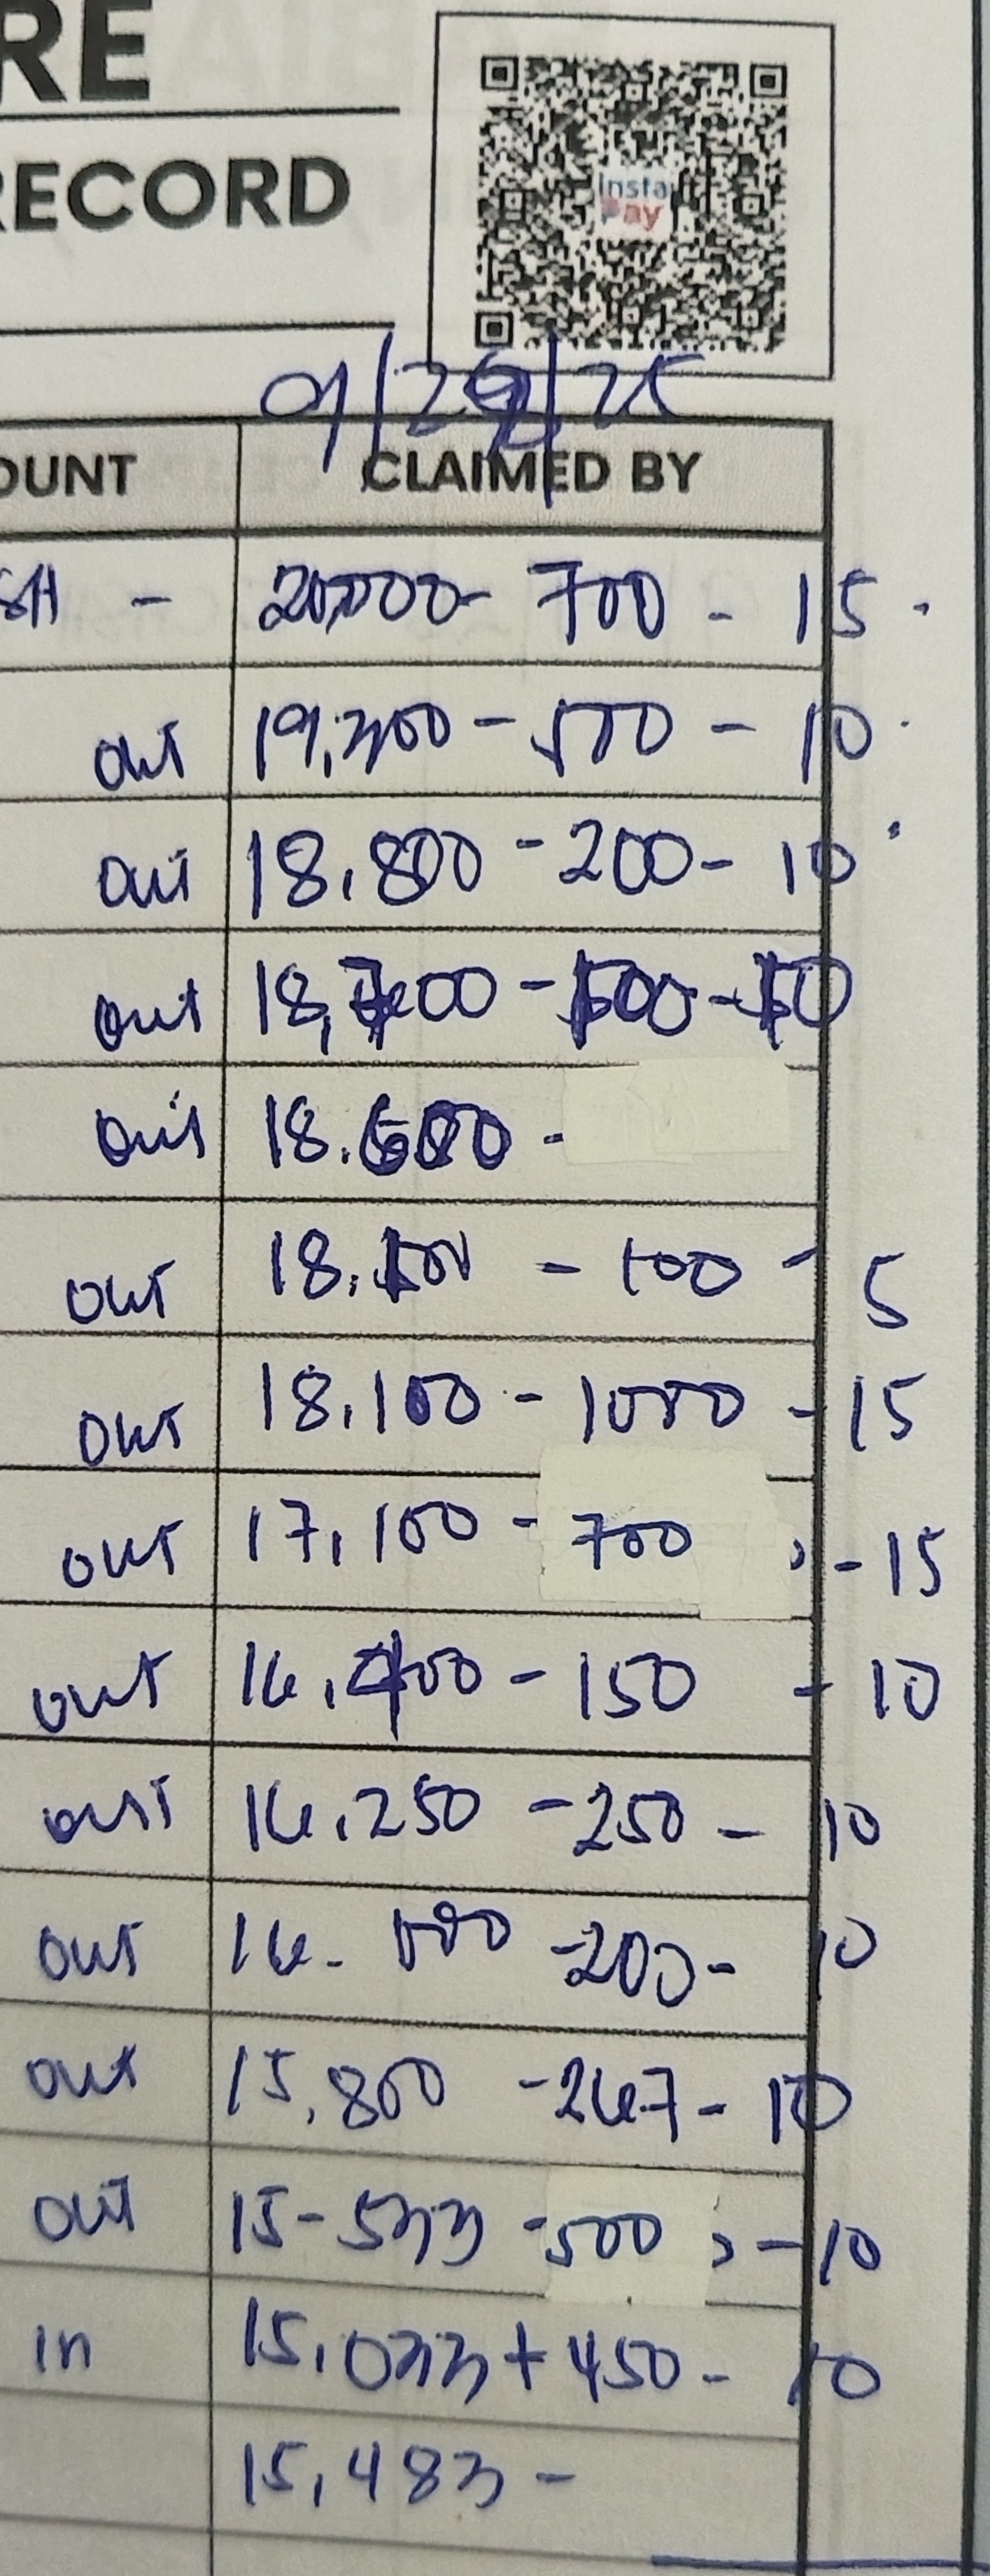 RE
RECORD
Insta
Pay
09/29/25
OUNT CLAIMED BY
SH - 20,000 - 700 - 15
out 19,300 - 500 - 10
out 18,800 - 200 - 10
out 18,600 - 500 - 10
out 18.600 -
out 18, - 100 - 5
out 18,100 - 1000 - 15
out 17,100 - 700 - 15
out 16,400 - 150 - 10
out 16,250 - 250 - 10
out 16-000 - 200 - 10
out 15,800 - 267 - 10
out 15-533 - 500 - 10
in 15,033 + 450 - 10
15,483 -